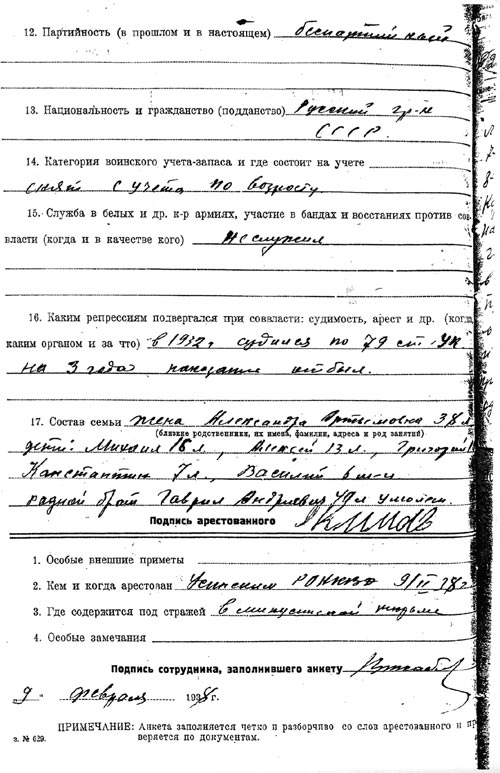 12. Партийность (в прошлом и в настоящем) беспартийный
13. Национальность и гражданство (подданство) Русский гр-н
СССР.
14. Категория воинского учета-запаса и где состоит на учете
снят с учета по возрасту
15. Служба в белых и др. к-р армиях, участие в бандах и восстаниях против сов
власти (когда и в качестве кого) не служил
16. Каким репрессиям подвергался при совласти: судимость, арест и др. (когд
каким органом и за что) в 1932 г судился по 79 ст. УК
на 3 года отбыл.
17. Состав семьи жена Александра 38 л
(близкие родственники, их имена, фамилии, адреса и род занятий)
дети: Михаил 16 л, Алексей 13 л., Григорий
Канстантин 7 л., Василий 6 м-ц
радной брат Гаврил
Подпись арестованного
1. Особые внешние приметы
2. Кем и когда арестован РОНКВД 9/II 38 г
3. Где содержится под стражей в минусинской тюрьме
4. Особые замечания
Подпись сотрудника, заполнившего анкету
9 февраля 1938 г.
ПРИМЕЧАНИЕ: Анкета заполняется четко и разборчиво со слов арестованного и пр
з. № 629. веряется по документам.